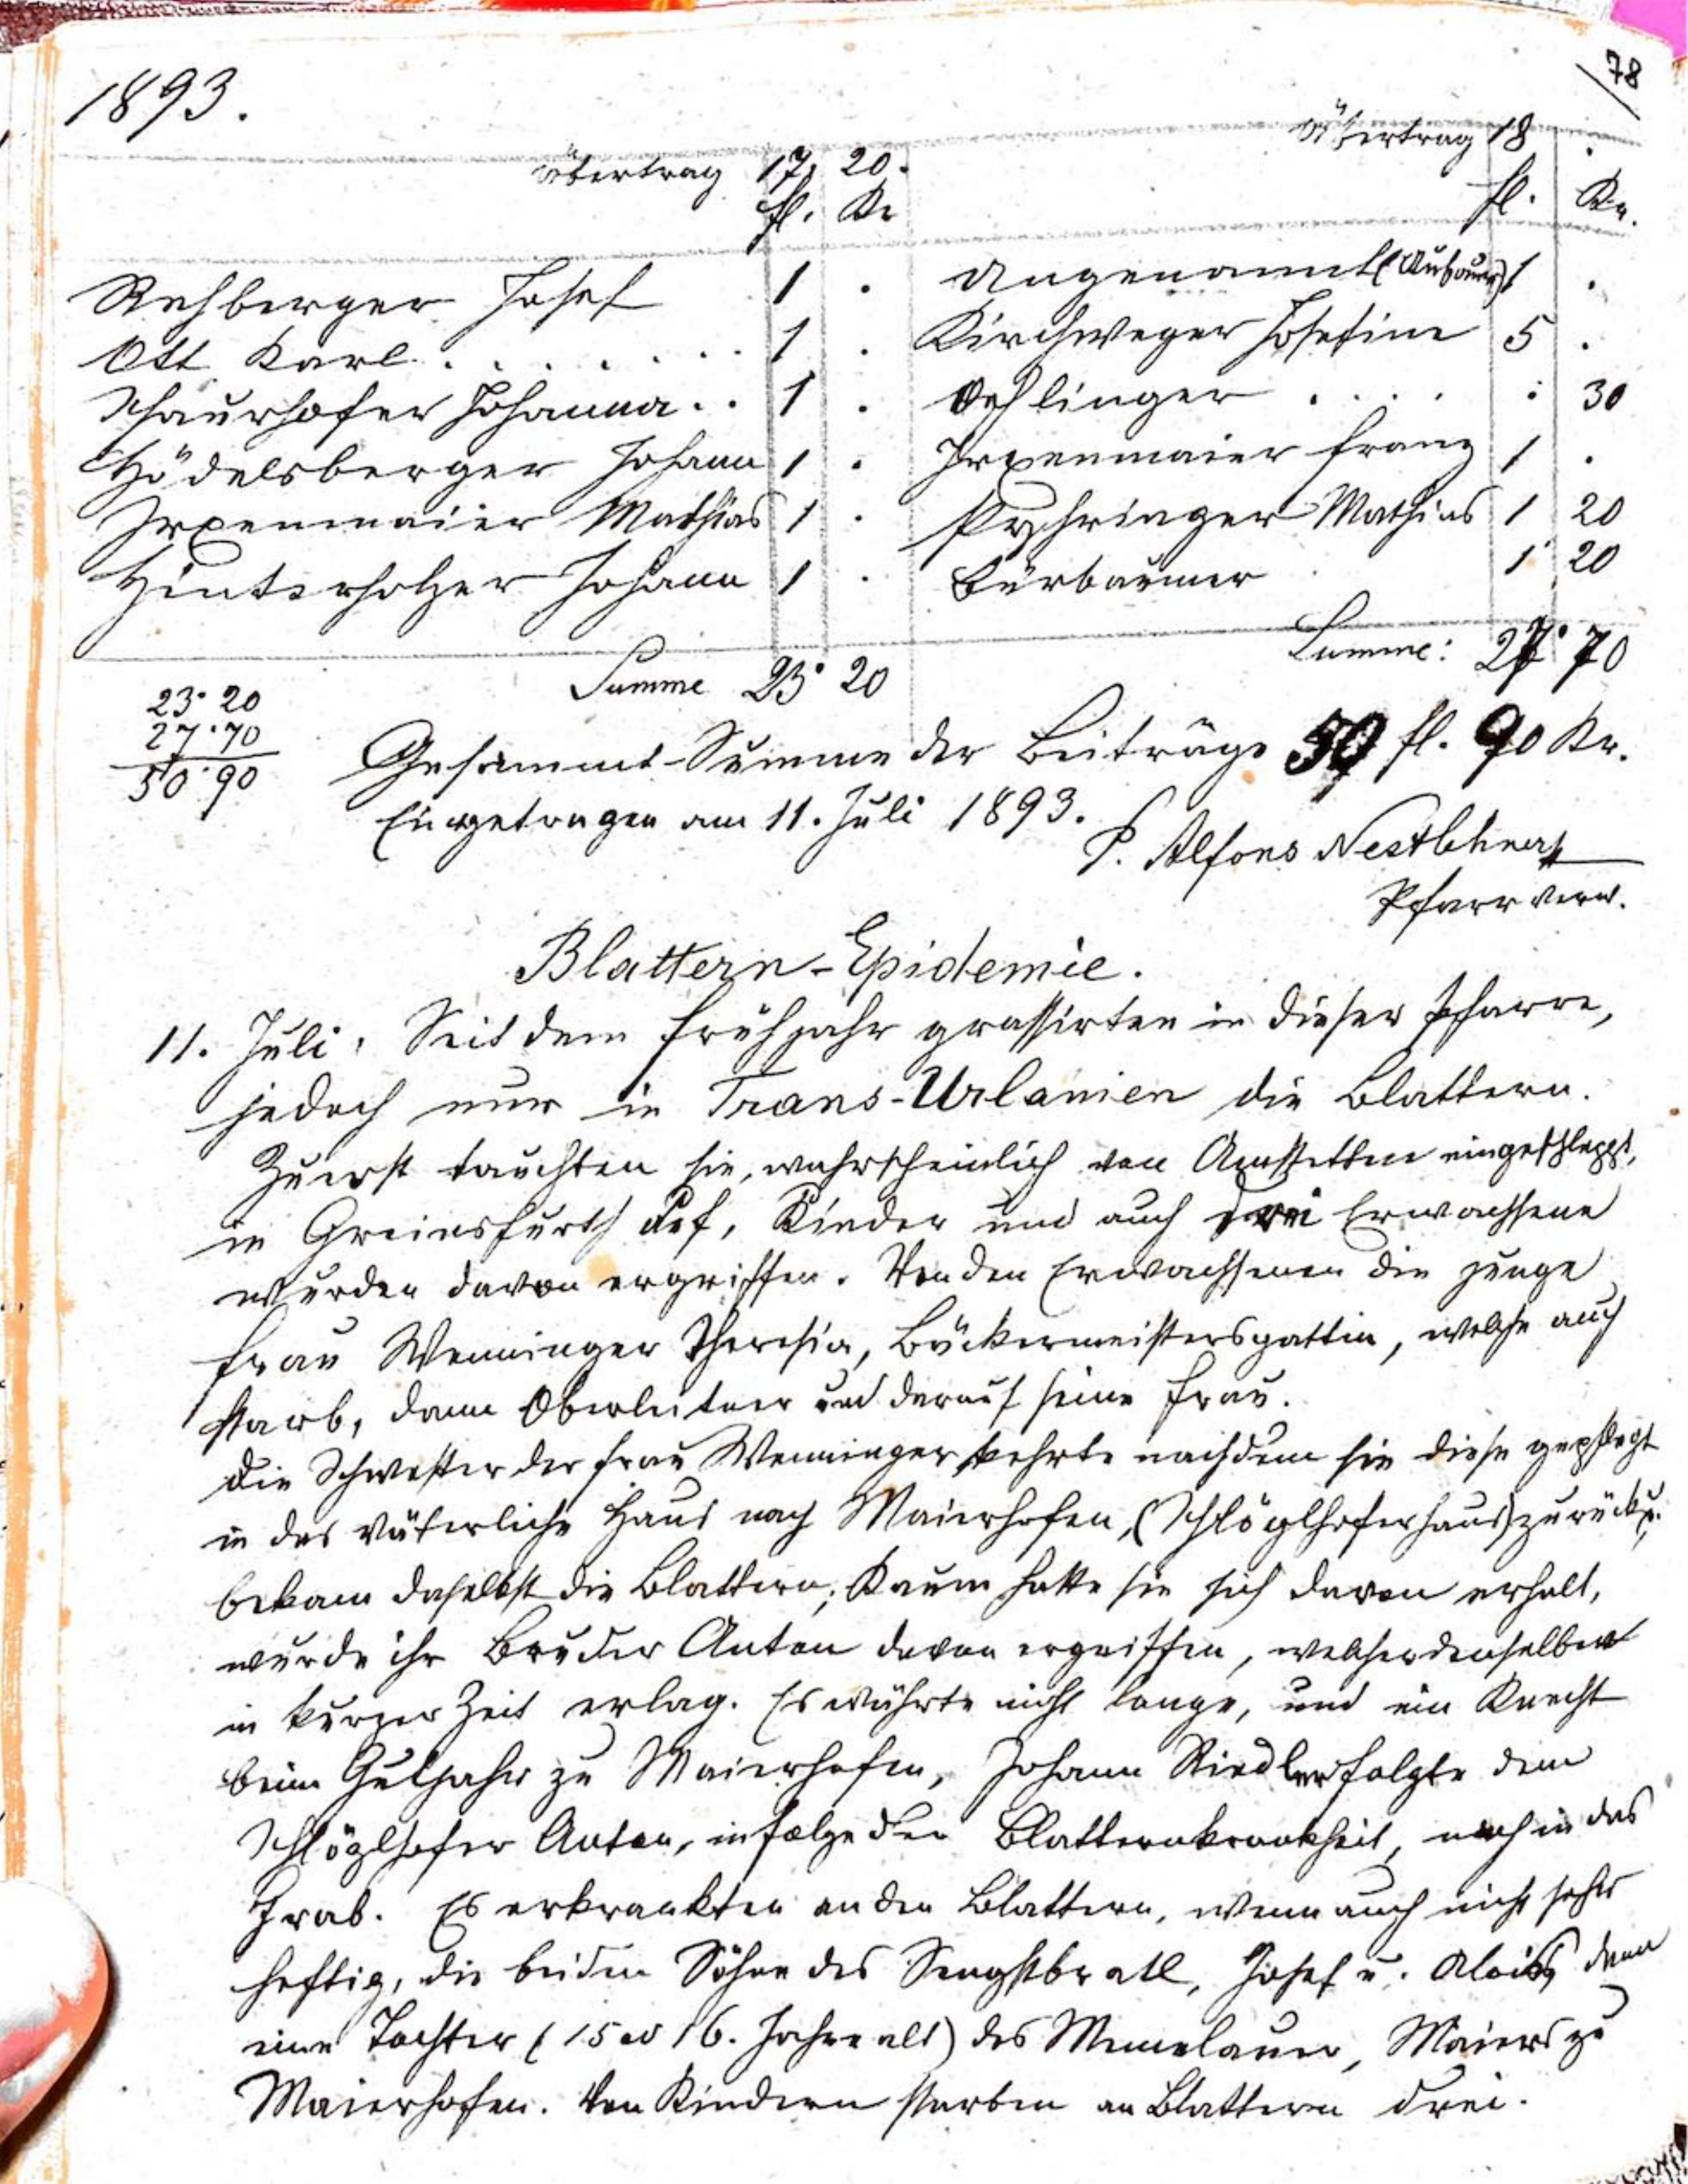 78
1893.
Übertrag 17. 20.
fl. Kr
Rehberger Josef 1 .
Ott Karl . . . . . . . . 1 .
Schaurhofer Johanna . . 1 .
Hödelsberger Johann 1 .
Irxenmaier Mathias 1 .
Hinterholzer Johann 1 .
Summe 23. 20
Übertrag 18 .
fl. Kr.
Ungenannt 1 .
Kirchweger Josefine 5 .
Oehlinger . . . . . 30
Irxenmaier Franz 1 .
Pyhringer Mathias 1 20
Bürbaumer 1 20
Summe: 27. 70
23. 20
27. 70
50. 90
Gesammt-Summe der Beiträge 50 fl. 90 Kr.
Eingetragen am 11. Juli 1893.
P. Alfons Nestlehner
Pfarrverw.
Blattern-Epidemie.
11. Juli. Seit dem Frühjahr grassirten in dieser Pfarre,
jedoch nur in Trans-Urlanien die Blattern.
Zuerst tauchten sie, wahrscheinlich von Amstetten eingeschleppt,
in Greinsfurth auf, Kinder und auch drei Erwachsene
wurden davon ergriffen. Von den Erwachsenen die junge
Frau Wenninger Theresia, Bäckermeistersgattin, welche auch
starb, dann Oberleitner und darauf seine Frau.
Die Schwester der Frau Wenninger kehrte nachdem sie diese gepflegt
in das väterliche Haus nach Maierhofen, (Schlöglhoferhaus) zurück u.
bekam daselbst die Blattern; Kaum hatte sie sich davon erholt,
wurde ihr Bruder Anton davon ergriffen, welcher denselben
in kurzer Zeit erlag. Es währte nicht lange, und ein Knecht
beim Gutjahr zu Maierhofen, Johann Riedler folgte dem
Schlöglhofer Anton, infolge der Blatternkrankheit, nach in das
Grab. Es erkrankten an den Blattern, wenn auch nicht sehr
heftig, die beiden Söhne des Sengstbratl, Josef u. Alois, dann
eine Tochter (15 od 16. Jahre alt) des Memelauer, Maiers zu
Maierhofen. Von Kindern starben an Blattern drei.